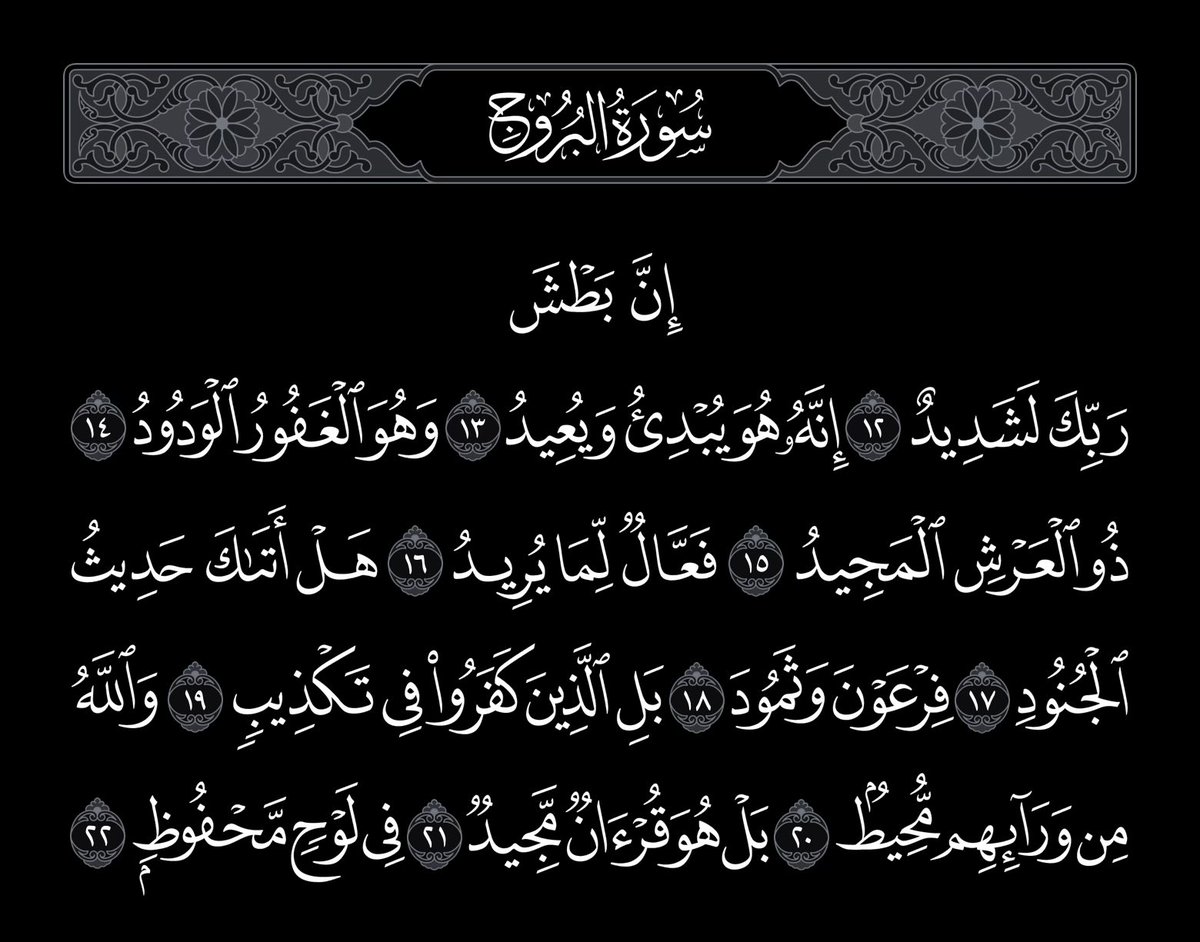 سُورَةُ البُرُوجِ
إِنَّ بَطْشَ
رَبِّكَ لَشَدِيدٌ ١٢ إِنَّهُۥ هُوَ يُبْدِئُ وَيُعِيدُ ١٣ وَهُوَ ٱلْغَفُورُ ٱلْوَدُودُ ١٤
ذُو ٱلْعَرْشِ ٱلْمَجِيدُ ١٥ فَعَّالٌ لِّمَا يُرِيدُ ١٦ هَلْ أَتَىٰكَ حَدِيثُ
ٱلْجُنُودِ ١٧ فِرْعَوْنَ وَثَمُودَ ١٨ بَلِ ٱلَّذِينَ كَفَرُوا۟ فِى تَكْذِيبٍ ١٩ وَٱللَّهُ
مِن وَرَآئِهِم مُّحِيطٌۢ ٢٠ بَلْ هُوَ قُرْءَانٌ مَّجِيدٌ ٢١ فِى لَوْحٍ مَّحْفُوظٍۭ ٢٢